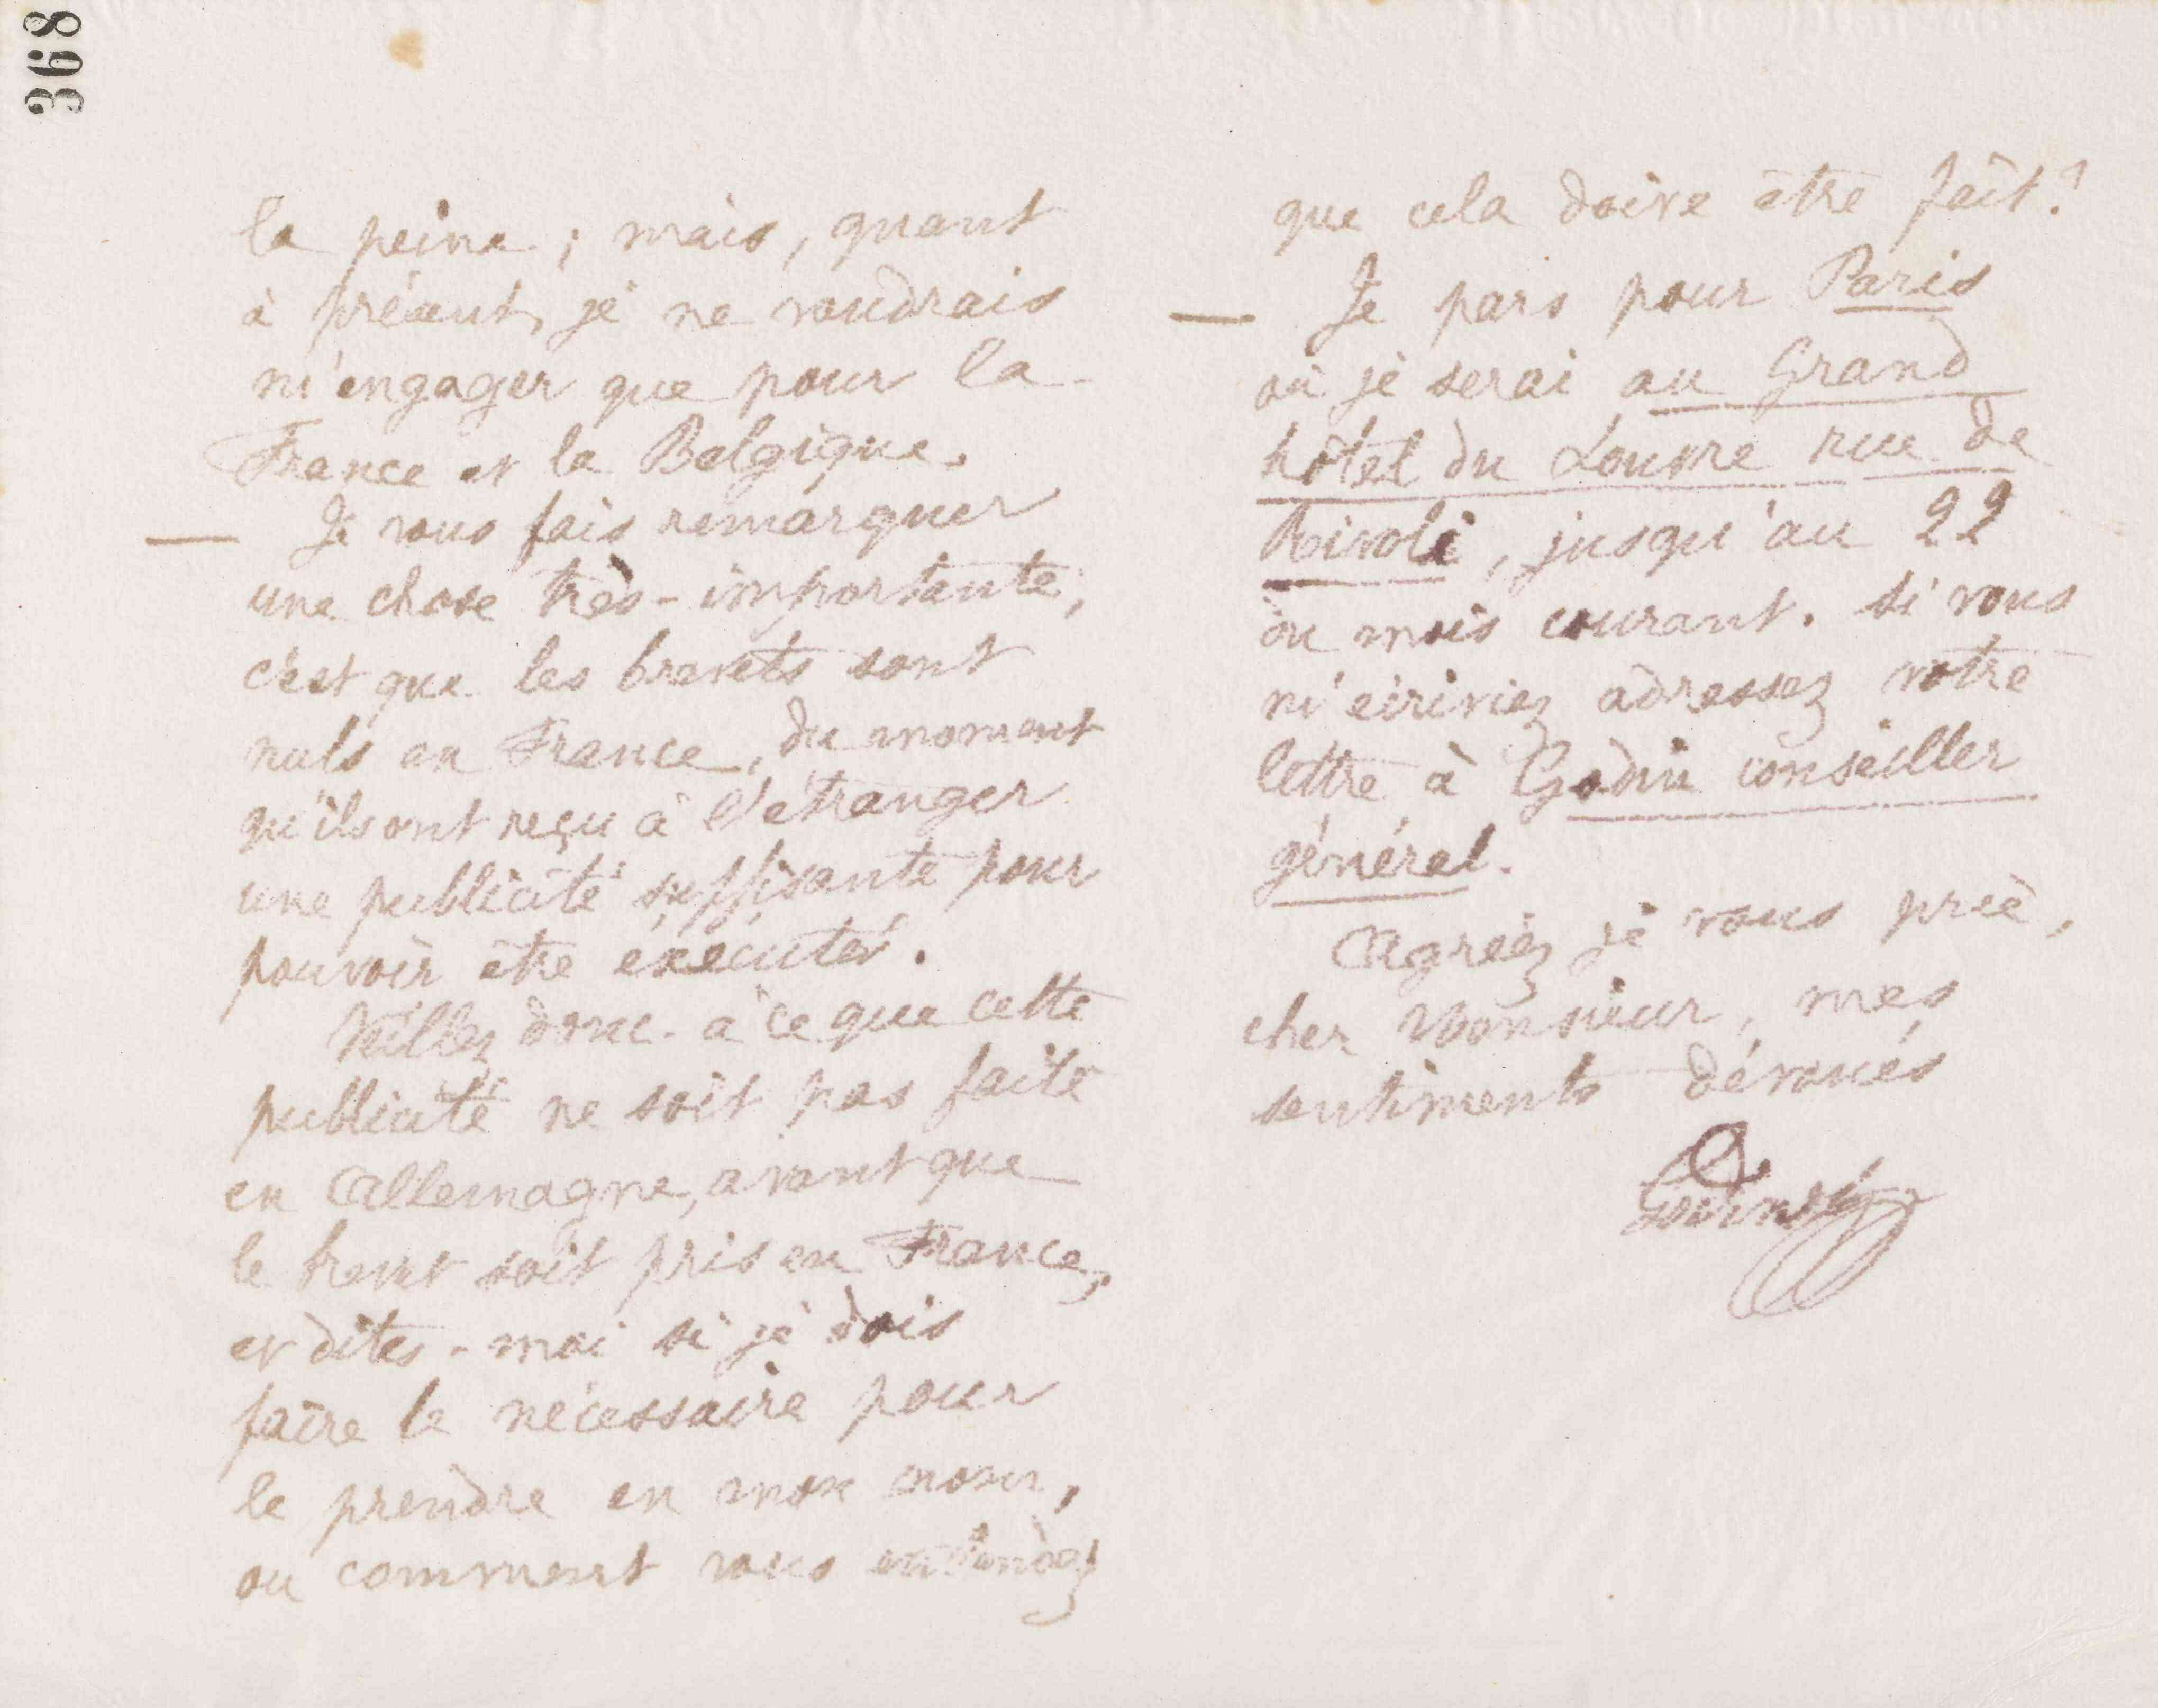 368
la peine ; mais, quant
à présent, je ne voudrais
m'engager que pour la
France et la Belgique.
— Je vous fais remarquer
une chose très-importante,
c'est que les brevets sont
nuls en France, du moment
qu'ils ont reçu à l'étranger
une publicité suffisante pour
pouvoir être exécutés.
Veillez donc à ce que cette
publicité ne soit pas faite
en Allemagne, avant que
le brevet soit pris en France,
et dites-moi si je dois
faire le nécessaire pour
le prendre en mon nom,
ou comment vous entendez
que cela doive être fait ?
— Je pars pour Paris
où je serai au Grand
hôtel du Louvre rue de
Rivoli, jusqu'au 22
du mois courant. Si vous
m'écriviez adressez votre
lettre à Godin conseiller
général.
Agréez je vous prie,
cher Monsieur, mes
sentiments dévoués
Godin